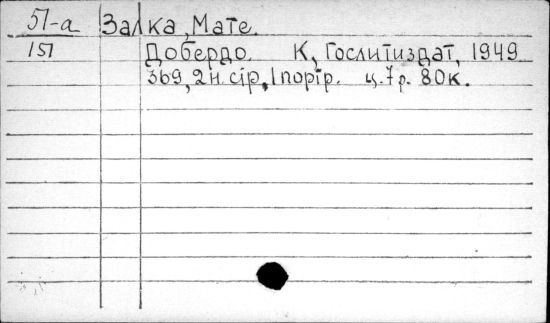 51-а Залка, Мате.
151 Добердо. К, Гослитиздат, 1949
369, 2н. сір, 1 порір. ц. 7 р. 80к.